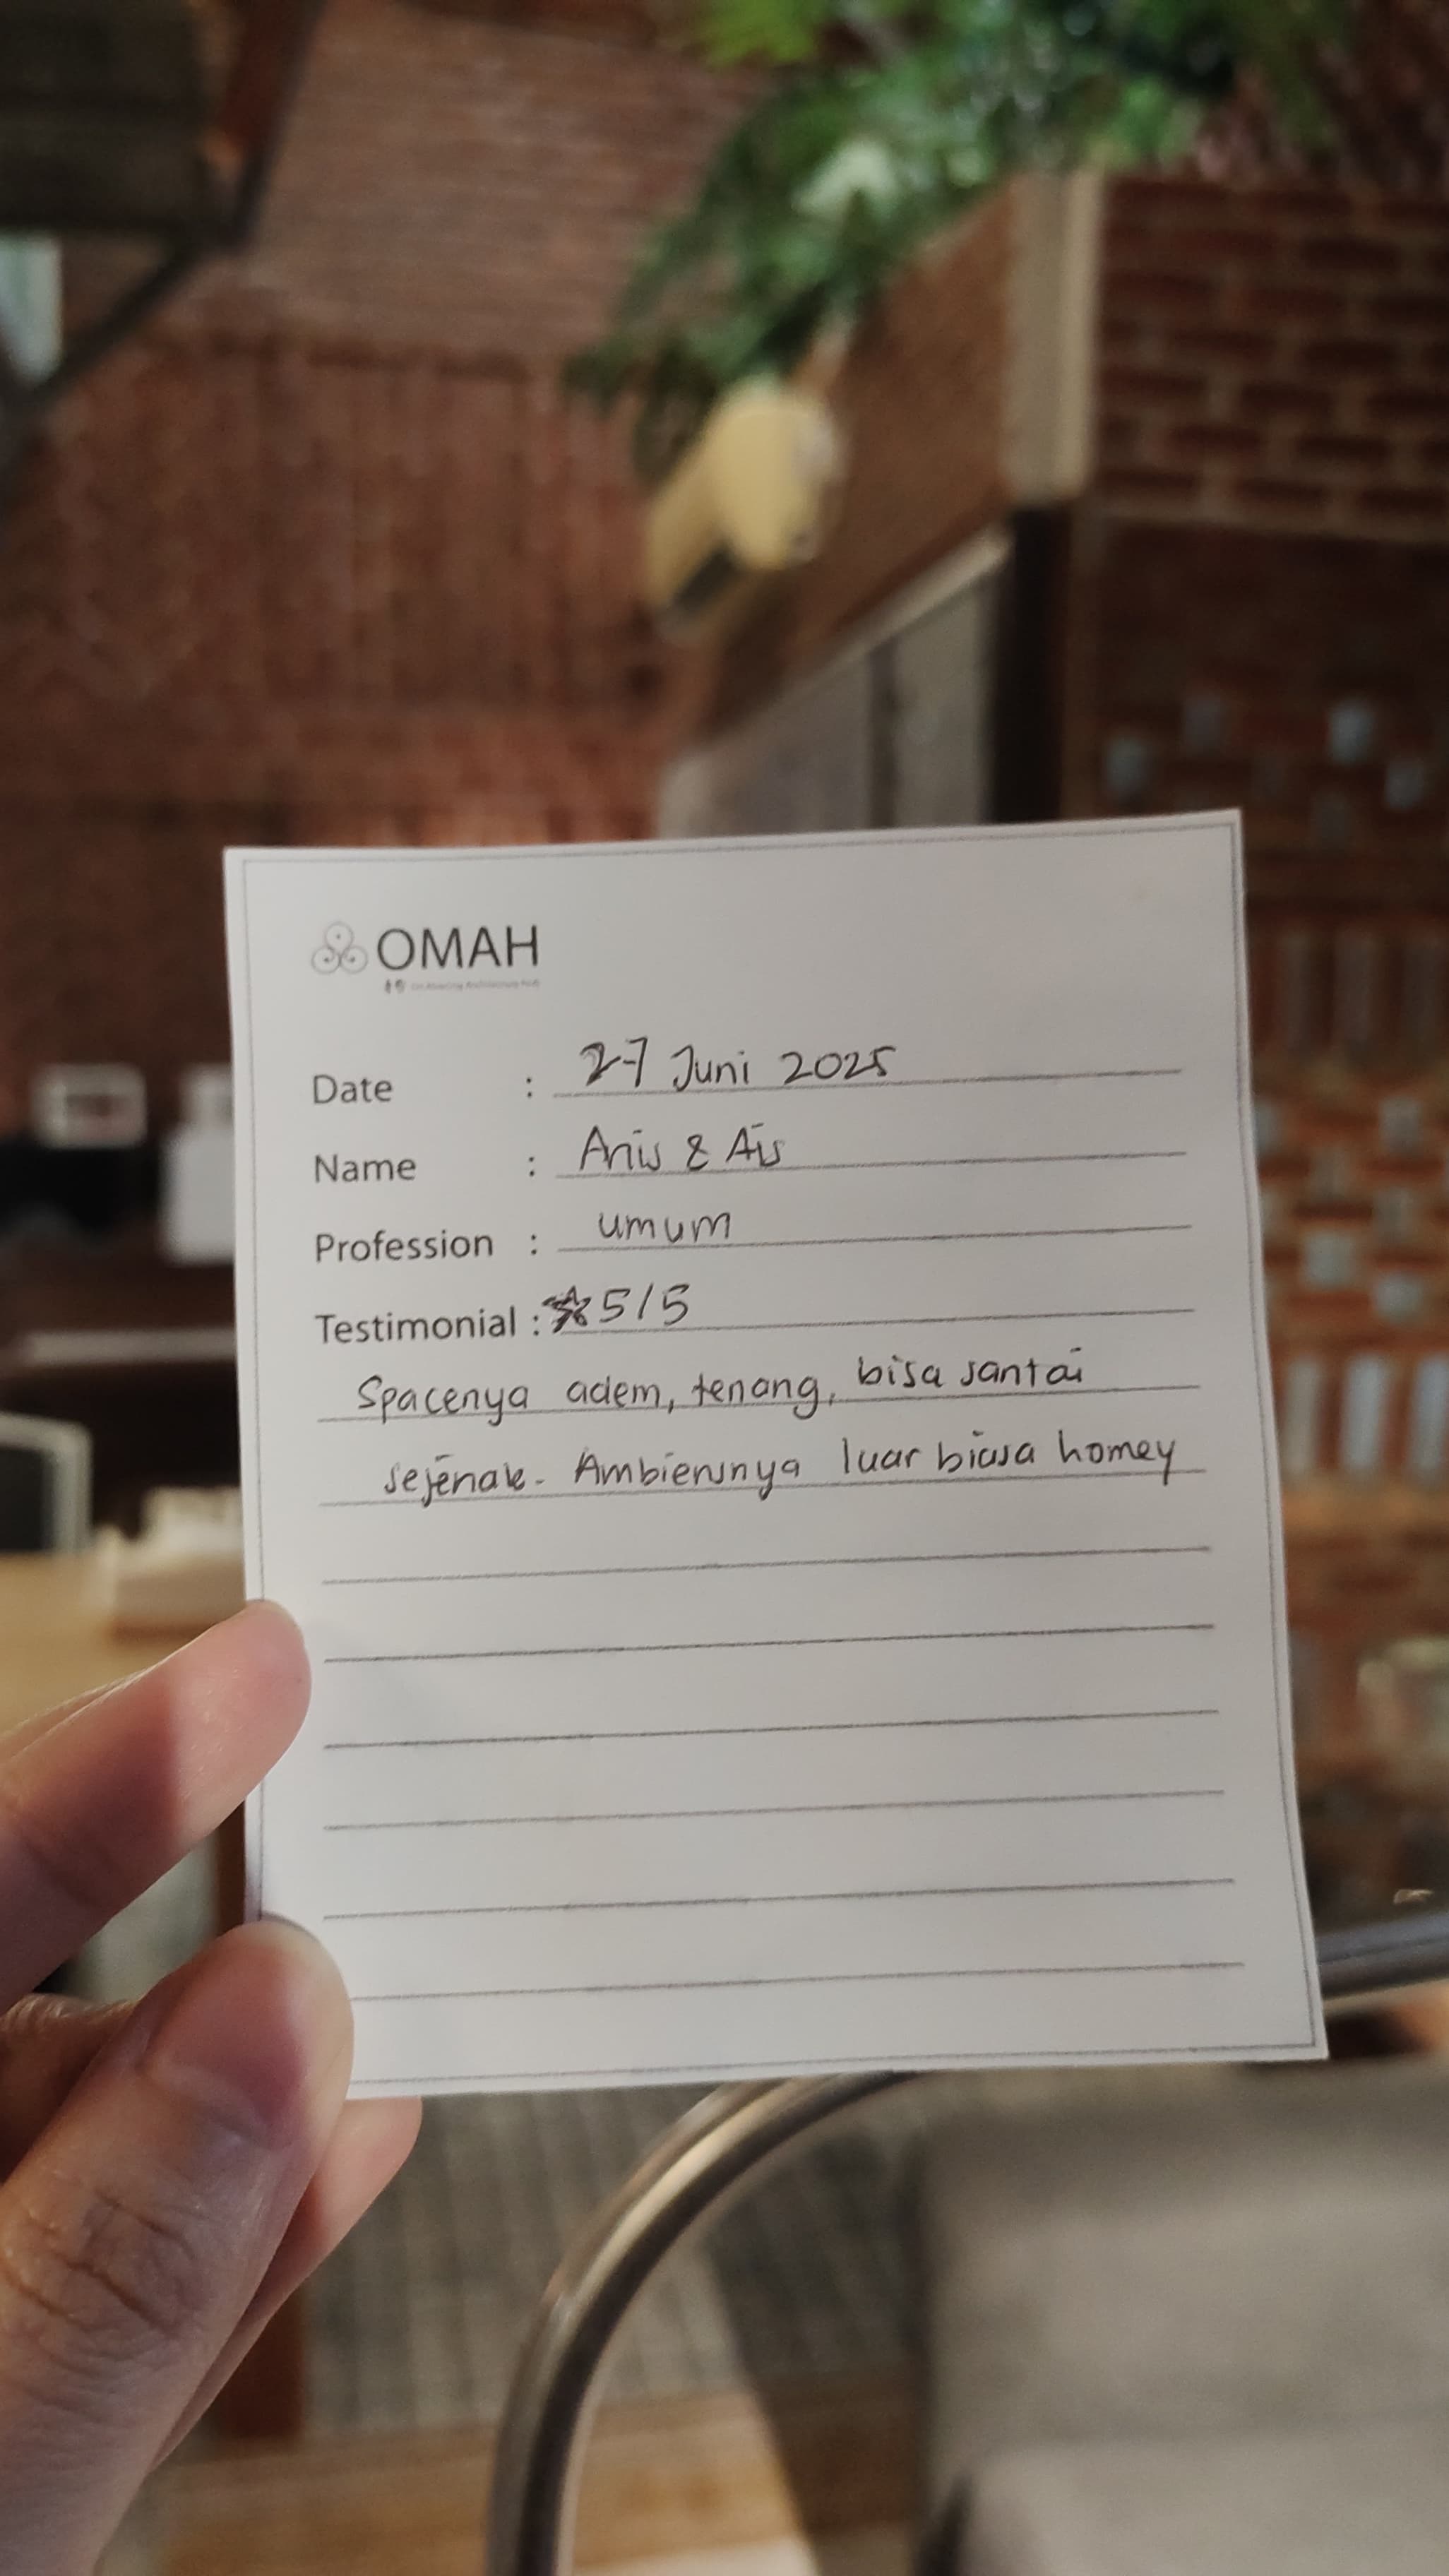 OMAH
Date : 27 Juni 2025
Name : Anis & Ais
Profession : umum
Testimonial : ☆ 5/5
Spacenya adem, tenang, bisa santai
sejenak. Ambiensnya luar biasa homey